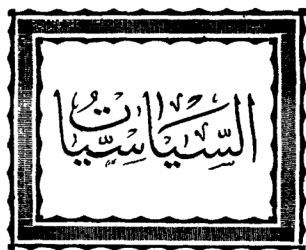 السِّيَاسِيَّاتُ